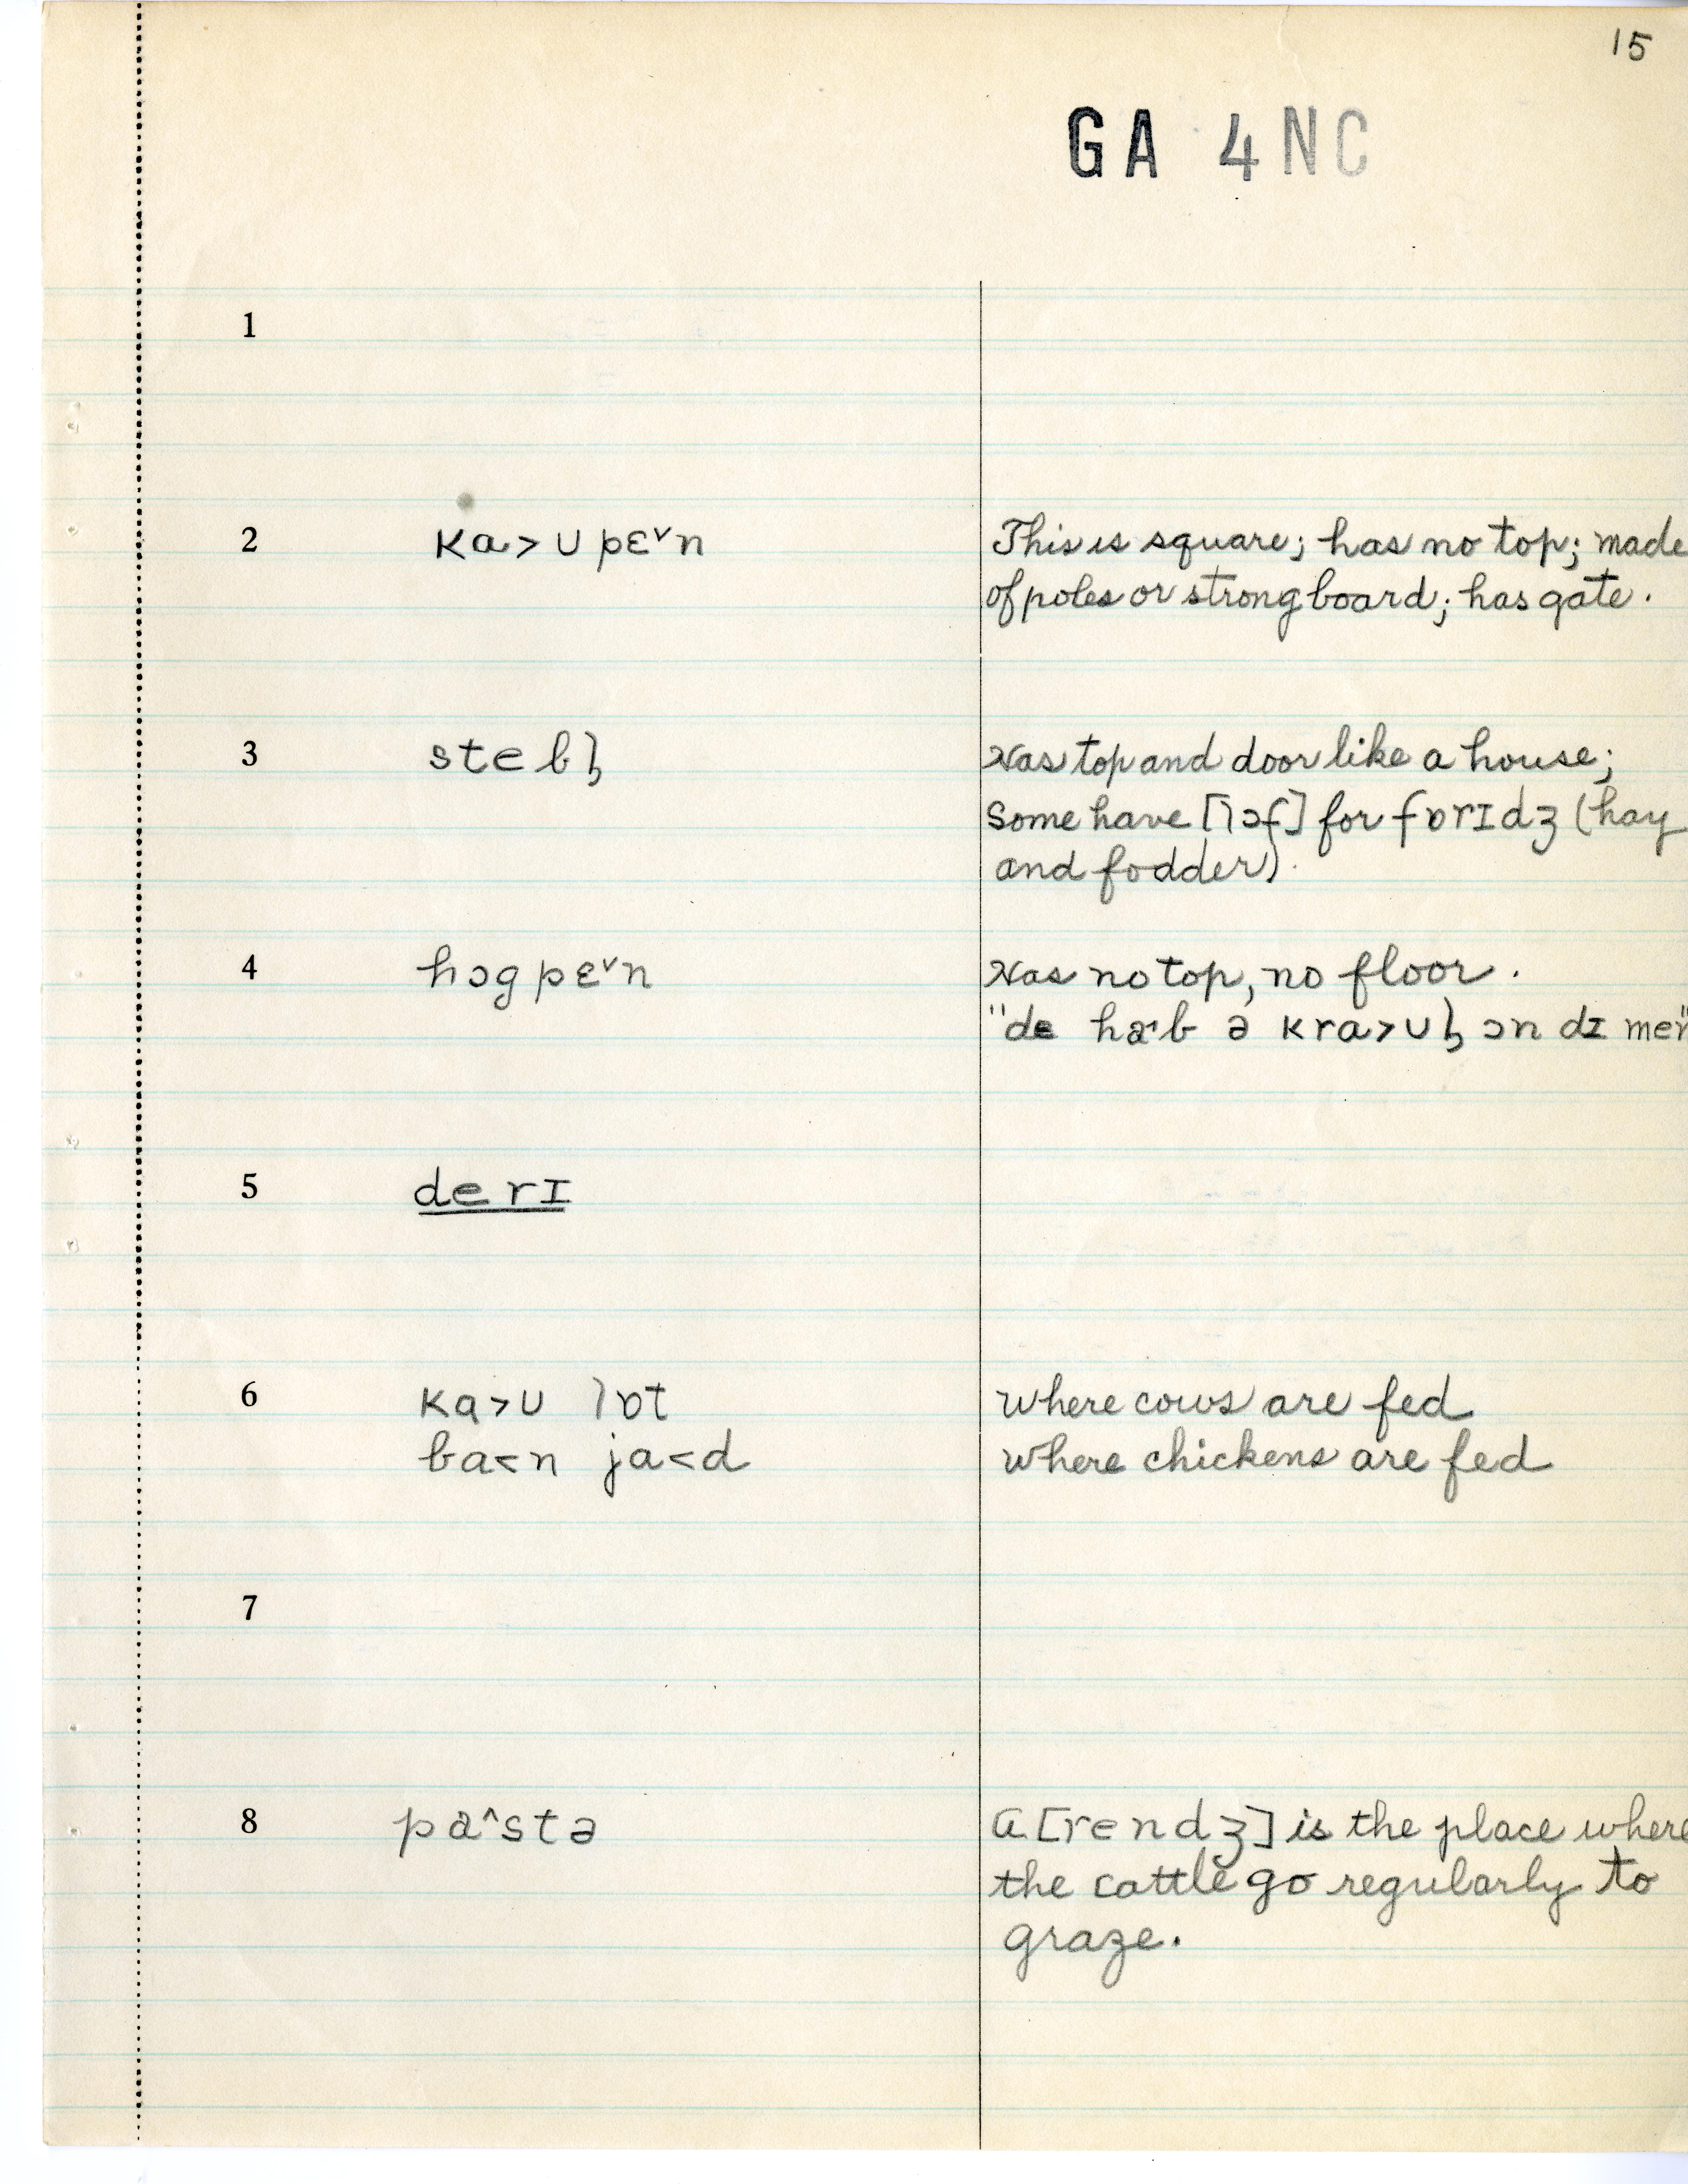 15
GA 4NC
1
2 kɑ>ʊ pɛ˅n This is square; has no top; made
of poles or strong board; has gate.
3 stebl̩ Has top and door like a house;
Some have [lɔf] for fɒrɪdʒ (hay
and fodder).
4 hɔg pɛ˅n Has no top, no floor.
"de hæ˃b ə krɑ>ʊl̩ ɔn dɪ
5 derɪ
6 kɑ>ʊ lɒt Where cows are fed
ba<n ja<d Where chickens are fed
7
8 pa^stə A [rendʒ] is the place where
the cattle go regularly to
graze.